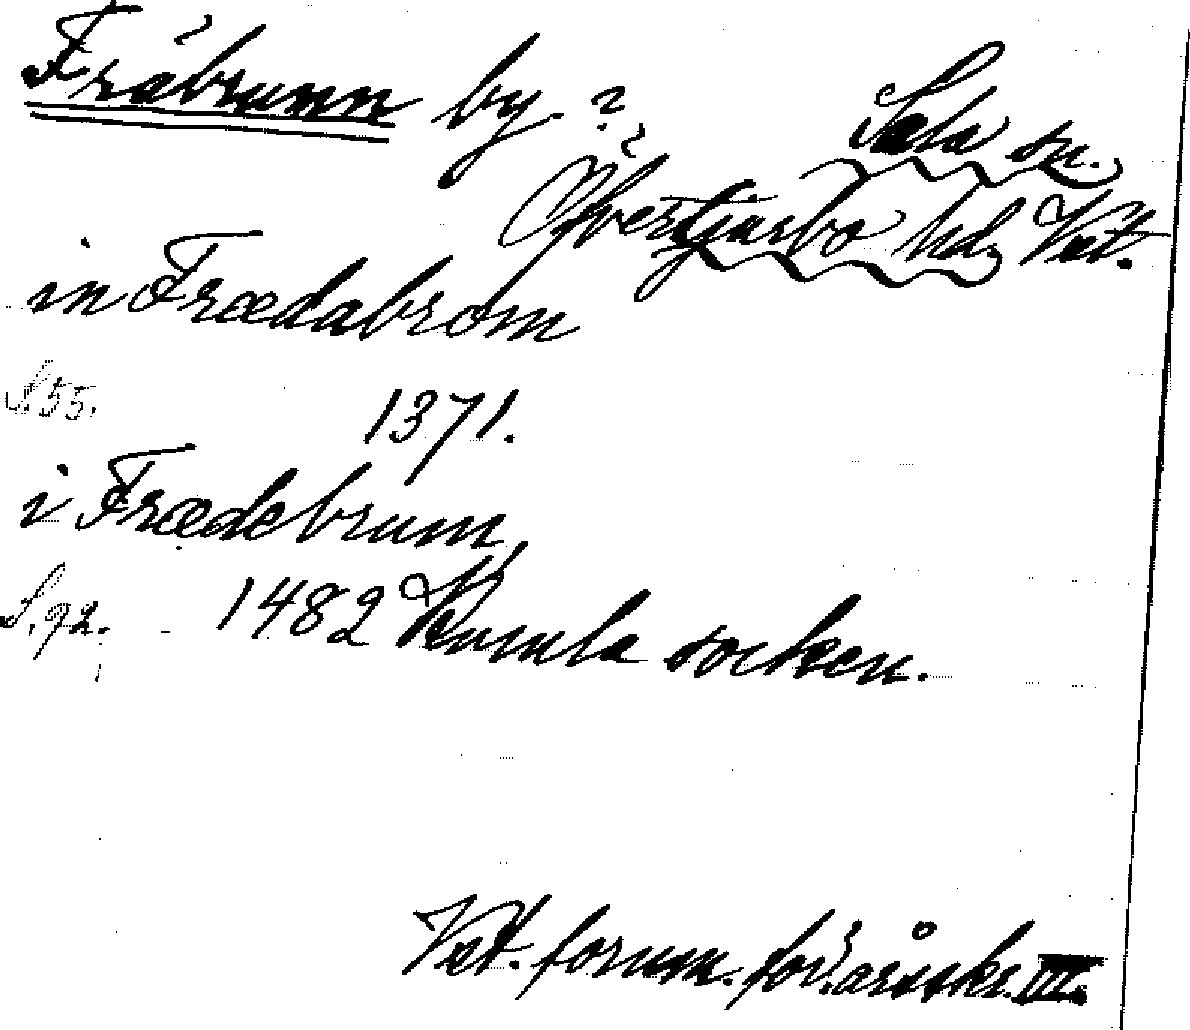 Fräbrunn by ?
Sala sn.
Övertjurbo hd, Vst.
in Frædabrom
S. 55.
1371.
i Frædebrum
S. 92.
1482 Kumla socken.
Vst. fornm. för. årsskr. III.